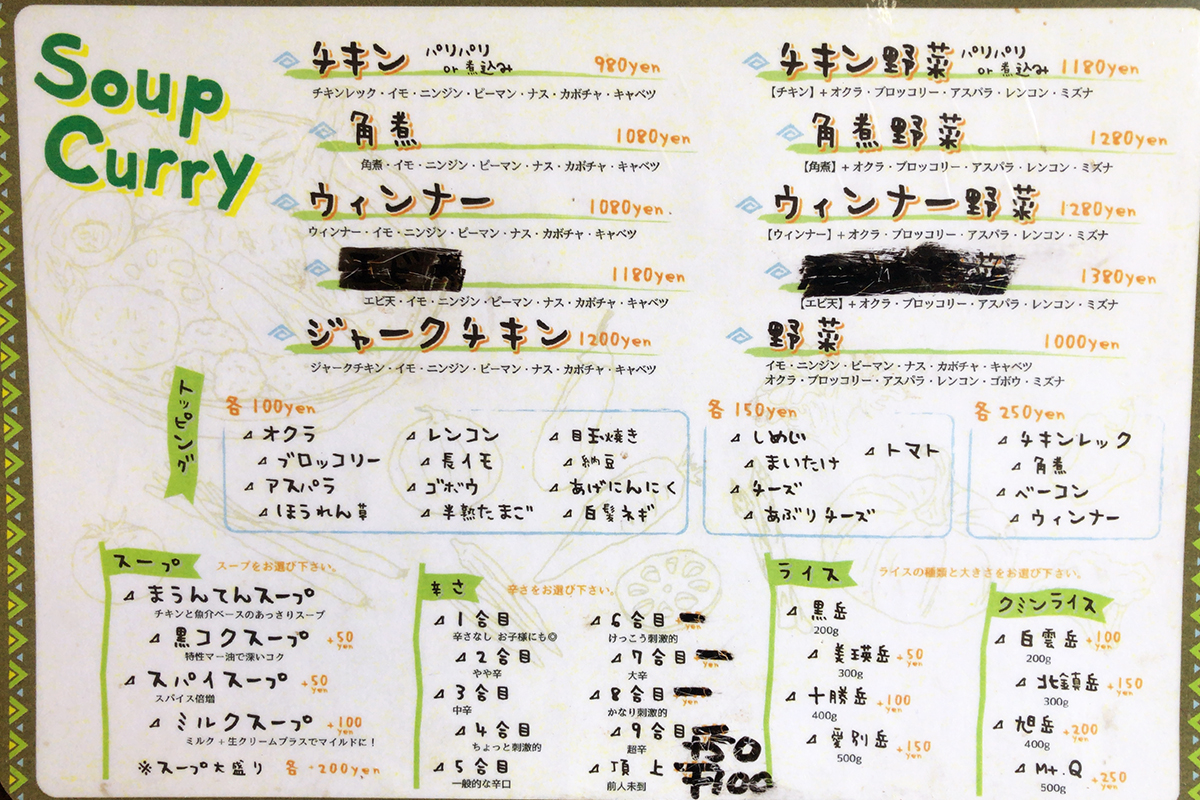 Soup
Curry
チキン パリパリ or 煮込み 980yen
チキンレック・イモ・ニンジン・ピーマン・ナス・カボチャ・キャベツ
角煮 1080yen
角煮・イモ・ニンジン・ピーマン・ナス・カボチャ・キャベツ
ウィンナー 1080yen.
ウィンナー・イモ・ニンジン・ピーマン・ナス・カボチャ・キャベツ
1180yen
エビ天・イモ・ニンジン・ピーマン・ナス・カボチャ・キャベツ
ジャークチキン 1200yen
ジャークチキン・イモ・ニンジン・ピーマン・ナス・カボチャ・キャベツ
チキン野菜 パリパリ or 煮込み 1180yen
【チキン】+オクラ・ブロッコリー・アスパラ・レンコン・ミズナ
角煮野菜 1280yen
【角煮】+オクラ・ブロッコリー・アスパラ・レンコン・ミズナ
ウィンナー野菜 1280yen
【ウィンナー】+オクラ・ブロッコリー・アスパラ・レンコン・ミズナ
1380yen
【エビ天】+オクラ・ブロッコリー・アスパラ・レンコン・ミズナ
野菜 1000yen
イモ・ニンジン・ピーマン・ナス・カボチャ・キャベツ
オクラ・ブロッコリー・アスパラ・レンコン・ゴボウ・ミズナ
トッピング
各100yen
オクラ レンコン 目玉焼き
ブロッコリー 長イモ 納豆
アスパラ ゴボウ あげにんにく
ほうれん草 半熟たまご 白髪ネギ
各150yen
しめじ
まいたけ トマト
チーズ
あぶりチーズ
各250yen
チキンレック
角煮
ベーコン
ウィンナー
スープ スープをお選び下さい。
まうんてんスープ
チキンと魚介ベースのあっさりスープ
黒コクスープ +50yen
特性マー油で深いコク
スパイスープ +50yen
スパイス倍増
ミルクスープ +100yen
ミルク+生クリームプラスでマイルドに!
※スープ大盛り 各+200yen
辛さ 辛さをお選び下さい。
1合目
辛さなし お子様にも◎
2合目
やや辛
3合目
中辛
4合目
ちょっと刺激的
5合目
一般的な辛口
6合目 yen
けっこう刺激的
7合目
大辛
8合目 yen
かなり刺激的
9合目 +50
超辛
頂上 +100
前人未到
ライス ライスの種類と大きさをお選び下さい。
黒岳
200g
美瑛岳 +50yen
300g
十勝岳 +100yen
400g
愛別岳 +150yen
500g
クミンライス
白雲岳 +100yen
200g
北鎮岳 +150yen
300g
旭岳 +200yen
400g
Mt.Q +250yen
500g